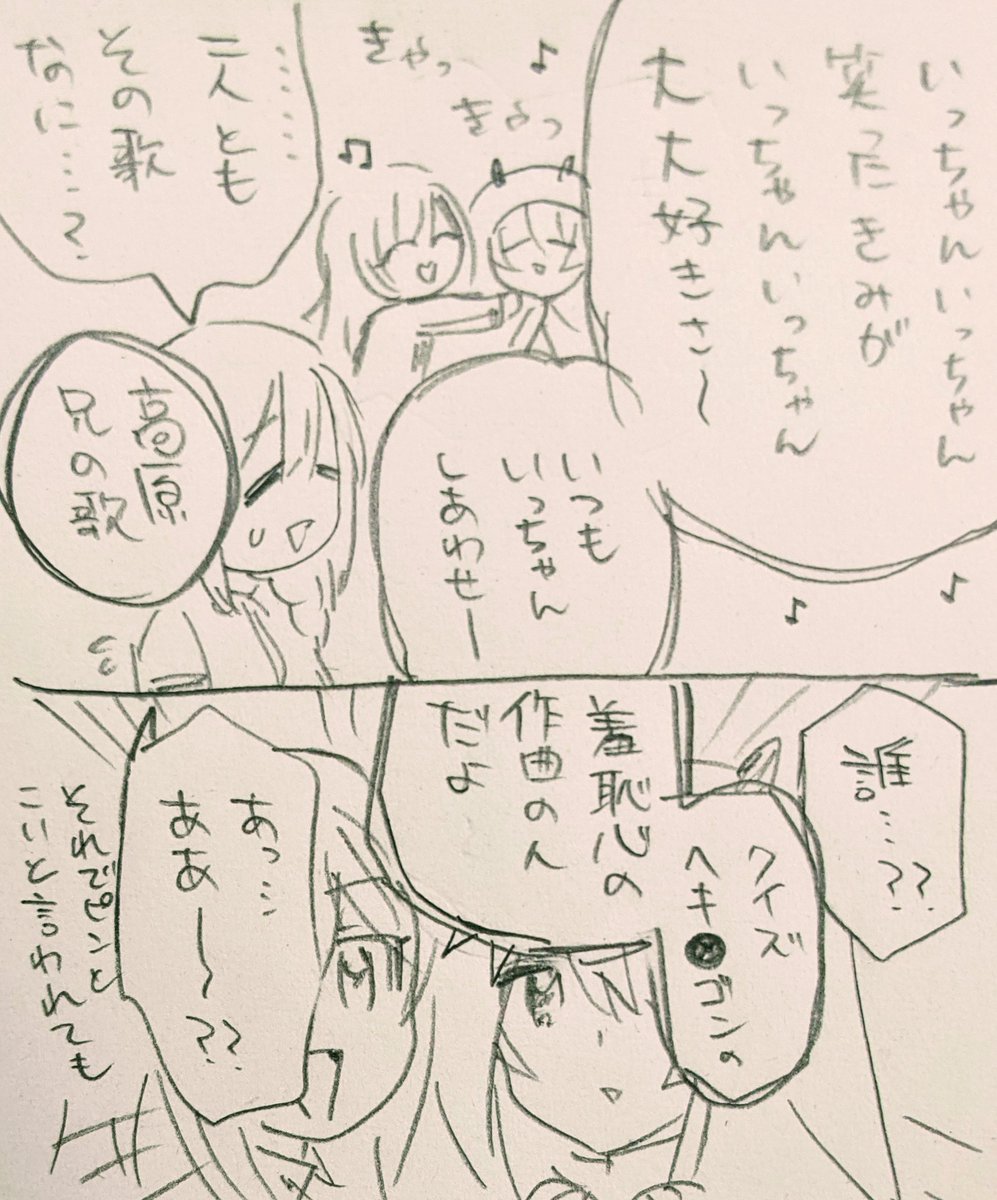 いっちゃんいっちゃん
笑ったきみが
いっちゃんいっちゃん
大大好きさ〜
♪
きゃっ
きゃっ
♫
いつも
いっちゃん
しあわせー
♪
♪
………
二人とも
その歌
なに…?
高原
兄の歌
誰…??
クイズ
ヘキ●ゴンの
羞恥心の
作曲の人
だよ
あっ…
ああ〜??
それでピンと
こいと言われても